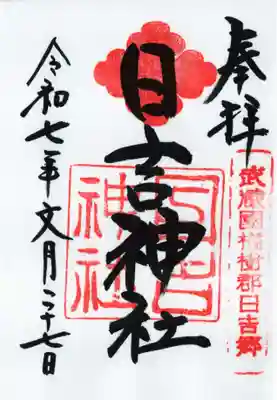 奉拝
武蔵國橘樹郡日吉郷
日吉神社
日吉神社
令和七年文月二十七日